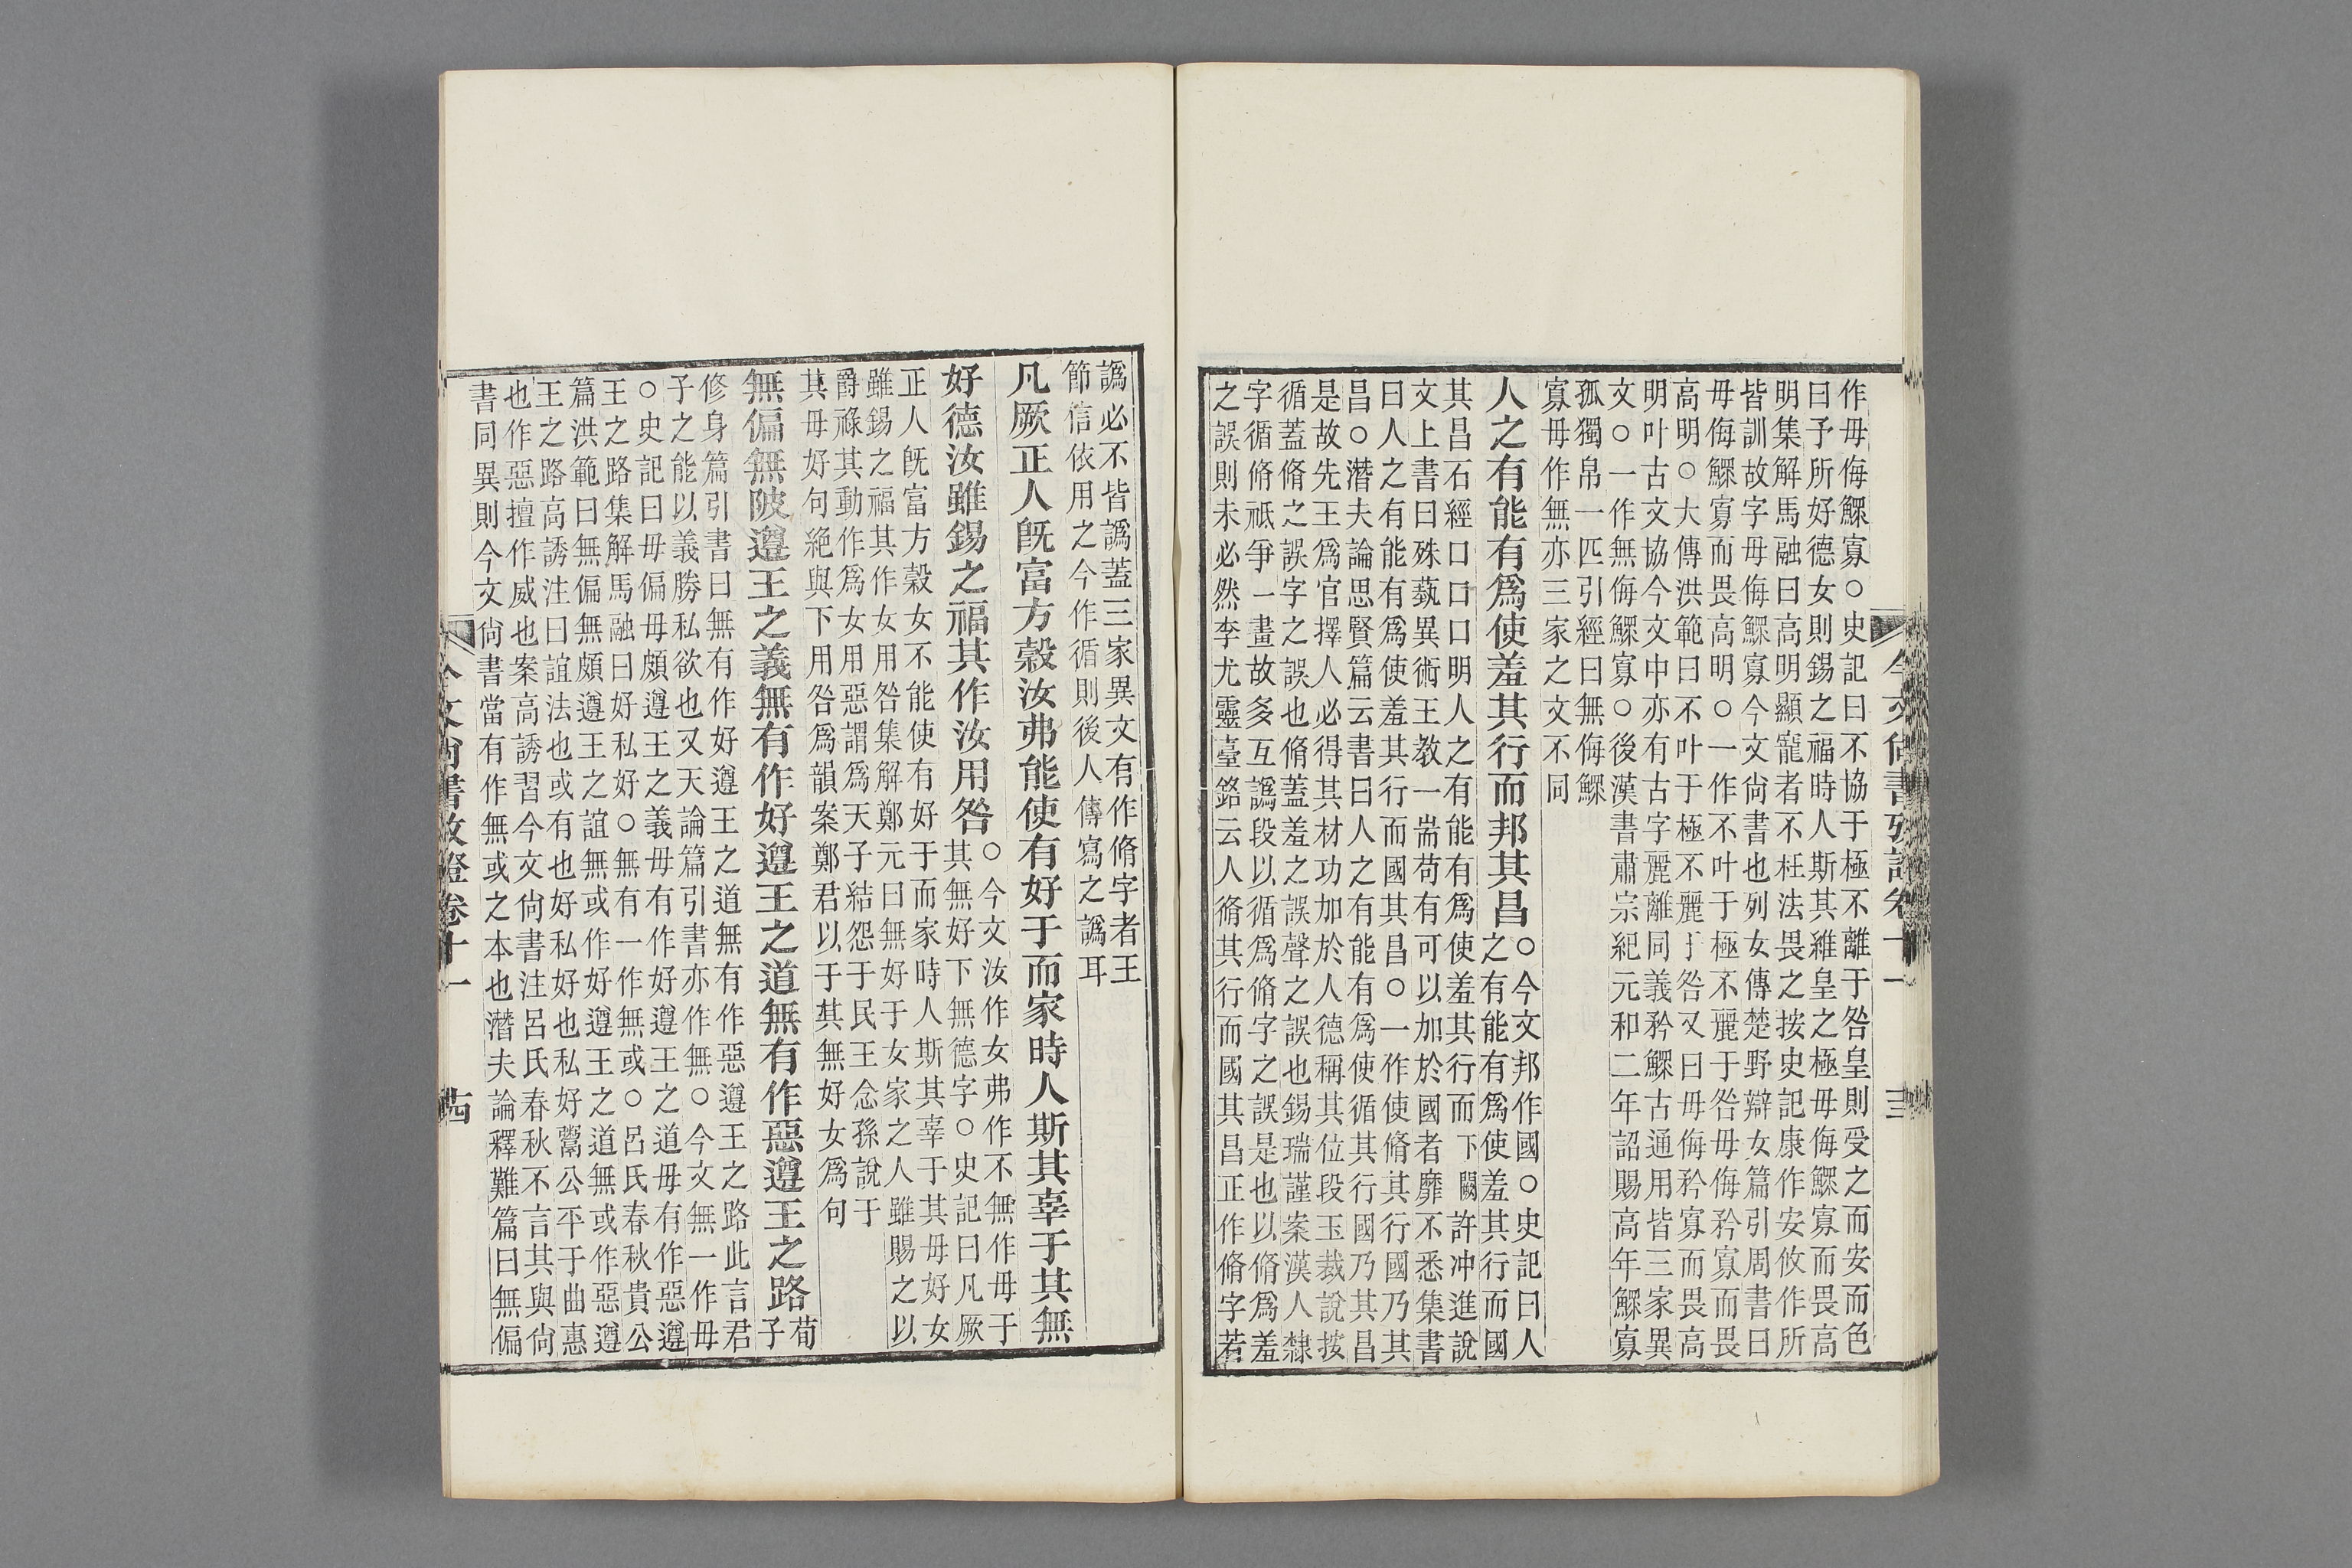 作毋侮鰥寡○史記曰不協于極不離于咎皇則受之而安而色
曰予所好德女則錫之福時人斯其維皇之極毋侮鰥寡而畏高
明集解馬融曰高明顯寵者不枉法畏之按史記康作安攸作所
皆訓故字毋侮鰥寡今文尙書也列女傳楚野辯女篇引周書曰
毋侮鰥寡而畏高明○一作不叶于極不麗于咎毋侮矜寡而畏
高明○大傳洪範曰不叶于極不麗于咎又曰毋侮矜寡而畏高
明叶古文協今文中亦有古字麗離同義矜鰥古通用皆三家異
文○一作無侮鰥寡○後漢書肅宗紀元和二年詔賜高年鰥寡
孤獨帛一匹引經曰無侮鰥
寡毋作無亦三家之文不同
人之有能有爲使羞其行而邦其昌
○今文邦作國○史記曰人
之有能有爲使羞其行而國
其昌石經口口口明人之有能有爲使羞其行而下闕許冲進說
文上書曰殊蓺異術王敎一耑苟有可以加於國者靡不悉集書
曰人之有能有爲使羞其行而國其昌○一作使脩其行國乃其
昌○潛夫論思賢篇云書曰人之有能有爲使循其行國乃其昌
是故先王爲官擇人必得其材功加於人德稱其位段玉裁說按
循蓋脩之誤字之誤也脩蓋羞之誤聲之誤也錫瑞謹案漢人隸
字循脩祗爭一畫故多互譌段以循爲脩字之誤是也以脩爲羞
之誤則未必然李尤靈臺銘云人脩其行而國其昌正作脩字若
今文尙書攷證卷十一
十三
譌必不皆譌蓋三家異文有作脩字者王
節信依用之今作循則後人傳寫之譌耳
凡厥正人旣富方穀汝弗能使有好于而家時人斯其辜于其無
好德汝雖錫之福其作汝用咎
○今文汝作女弗作不無作毋于
其無好下無德字○史記曰凡厥
正人旣富方穀女不能使有好于而家時人斯其辜于其毋好女
雖錫之福其作女用咎集解鄭元曰無好于女家之人雖賜之以
爵祿其動作爲女用惡謂爲天子結怨于民王念孫說于
其毋好句絕與下用咎爲韻案鄭君以于其無好女爲句
無偏無陂遵王之義無有作好遵王之道無有作惡遵王之路
荀
子
修身篇引書曰無有作好遵王之道無有作惡遵王之路此言君
子之能以義勝私欲也又天論篇引書亦作無○今文無一作毋
○史記曰毋偏毋頗遵王之義毋有作好遵王之道毋有作惡遵
王之路集解馬融曰好私好○無有一作無或○呂氏春秋貴公
篇洪範曰無偏無頗遵王之誼無或作好遵王之道無或作惡遵
王之路高誘注曰誼法也或有也好私好也私好鬻公平于曲惠
也作惡擅作威也案高誘習今文尙書注呂氏春秋不言其與尙
書同異則今文尙書當有作無或之本也潛夫論釋難篇曰無偏
今文尙書攷證卷十一
十四